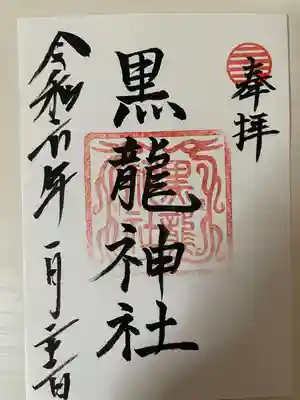 奉拝
黒龍神社
令和六年一月二十一日